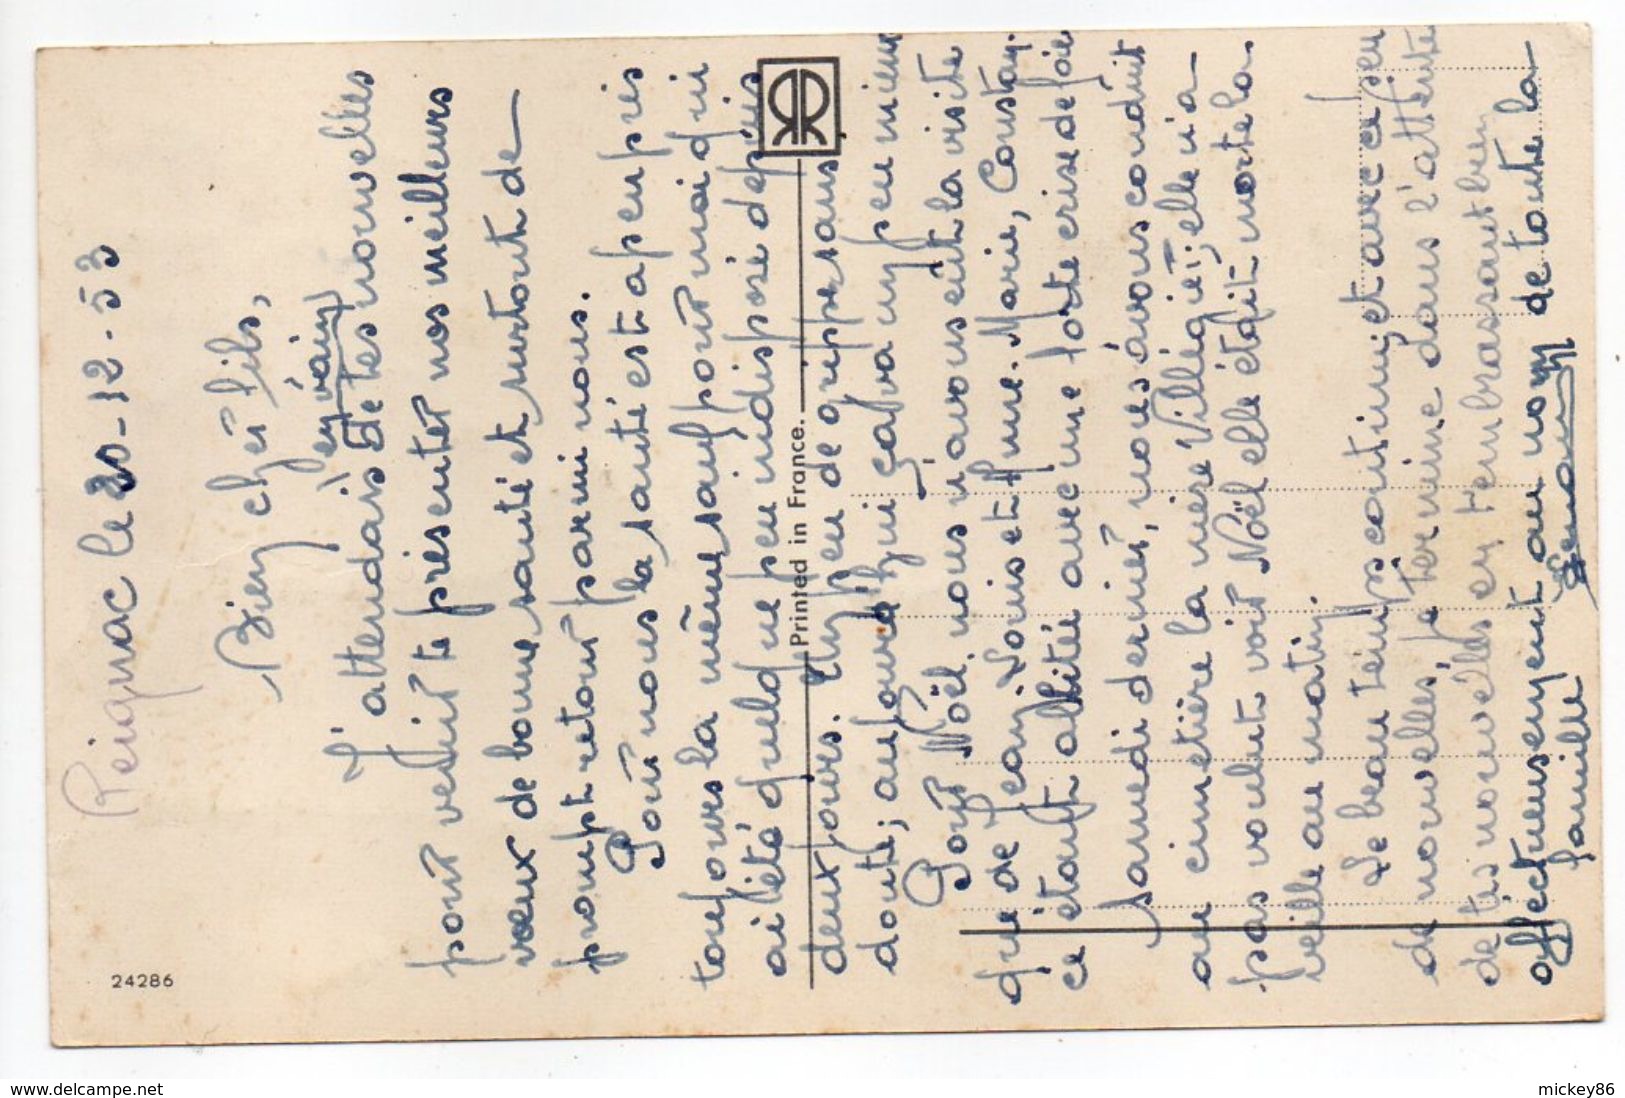 Reignac le 20-12-53
Bien cher fils,
en vain
J'attendais de tes nouvelles
pour venir te présenter nos meilleurs
vœux de bonne santé et surtout de
prompt retour parmi nous.
Pour nous la santé est à peu près
toujours la même sauf pour moi qui
ai été quelque peu indisposé depuis
deux jours. Un peu de grippe sans
doute; aujourd'hui ça va un peu mieux
Pour Noël, nous n'avons eu la visite
que de Jean, Louis et Mme. Marie, Constan.
ce étant alitée avec une forte crise de foie
Samedi dernier, nous avons conduit
au cimetière la mère Villégier; elle n'a
pas voulu voir Noël elle était morte la
veille au matin.
Le beau temps continu, et avec ce peu
de nouvelles, je termine dans l'attente
de tes nouvelles en t'embrassant bien
affectueusement au nom de toute la
famille
24286
Printed in France.
www.delcampe.net
mickey86